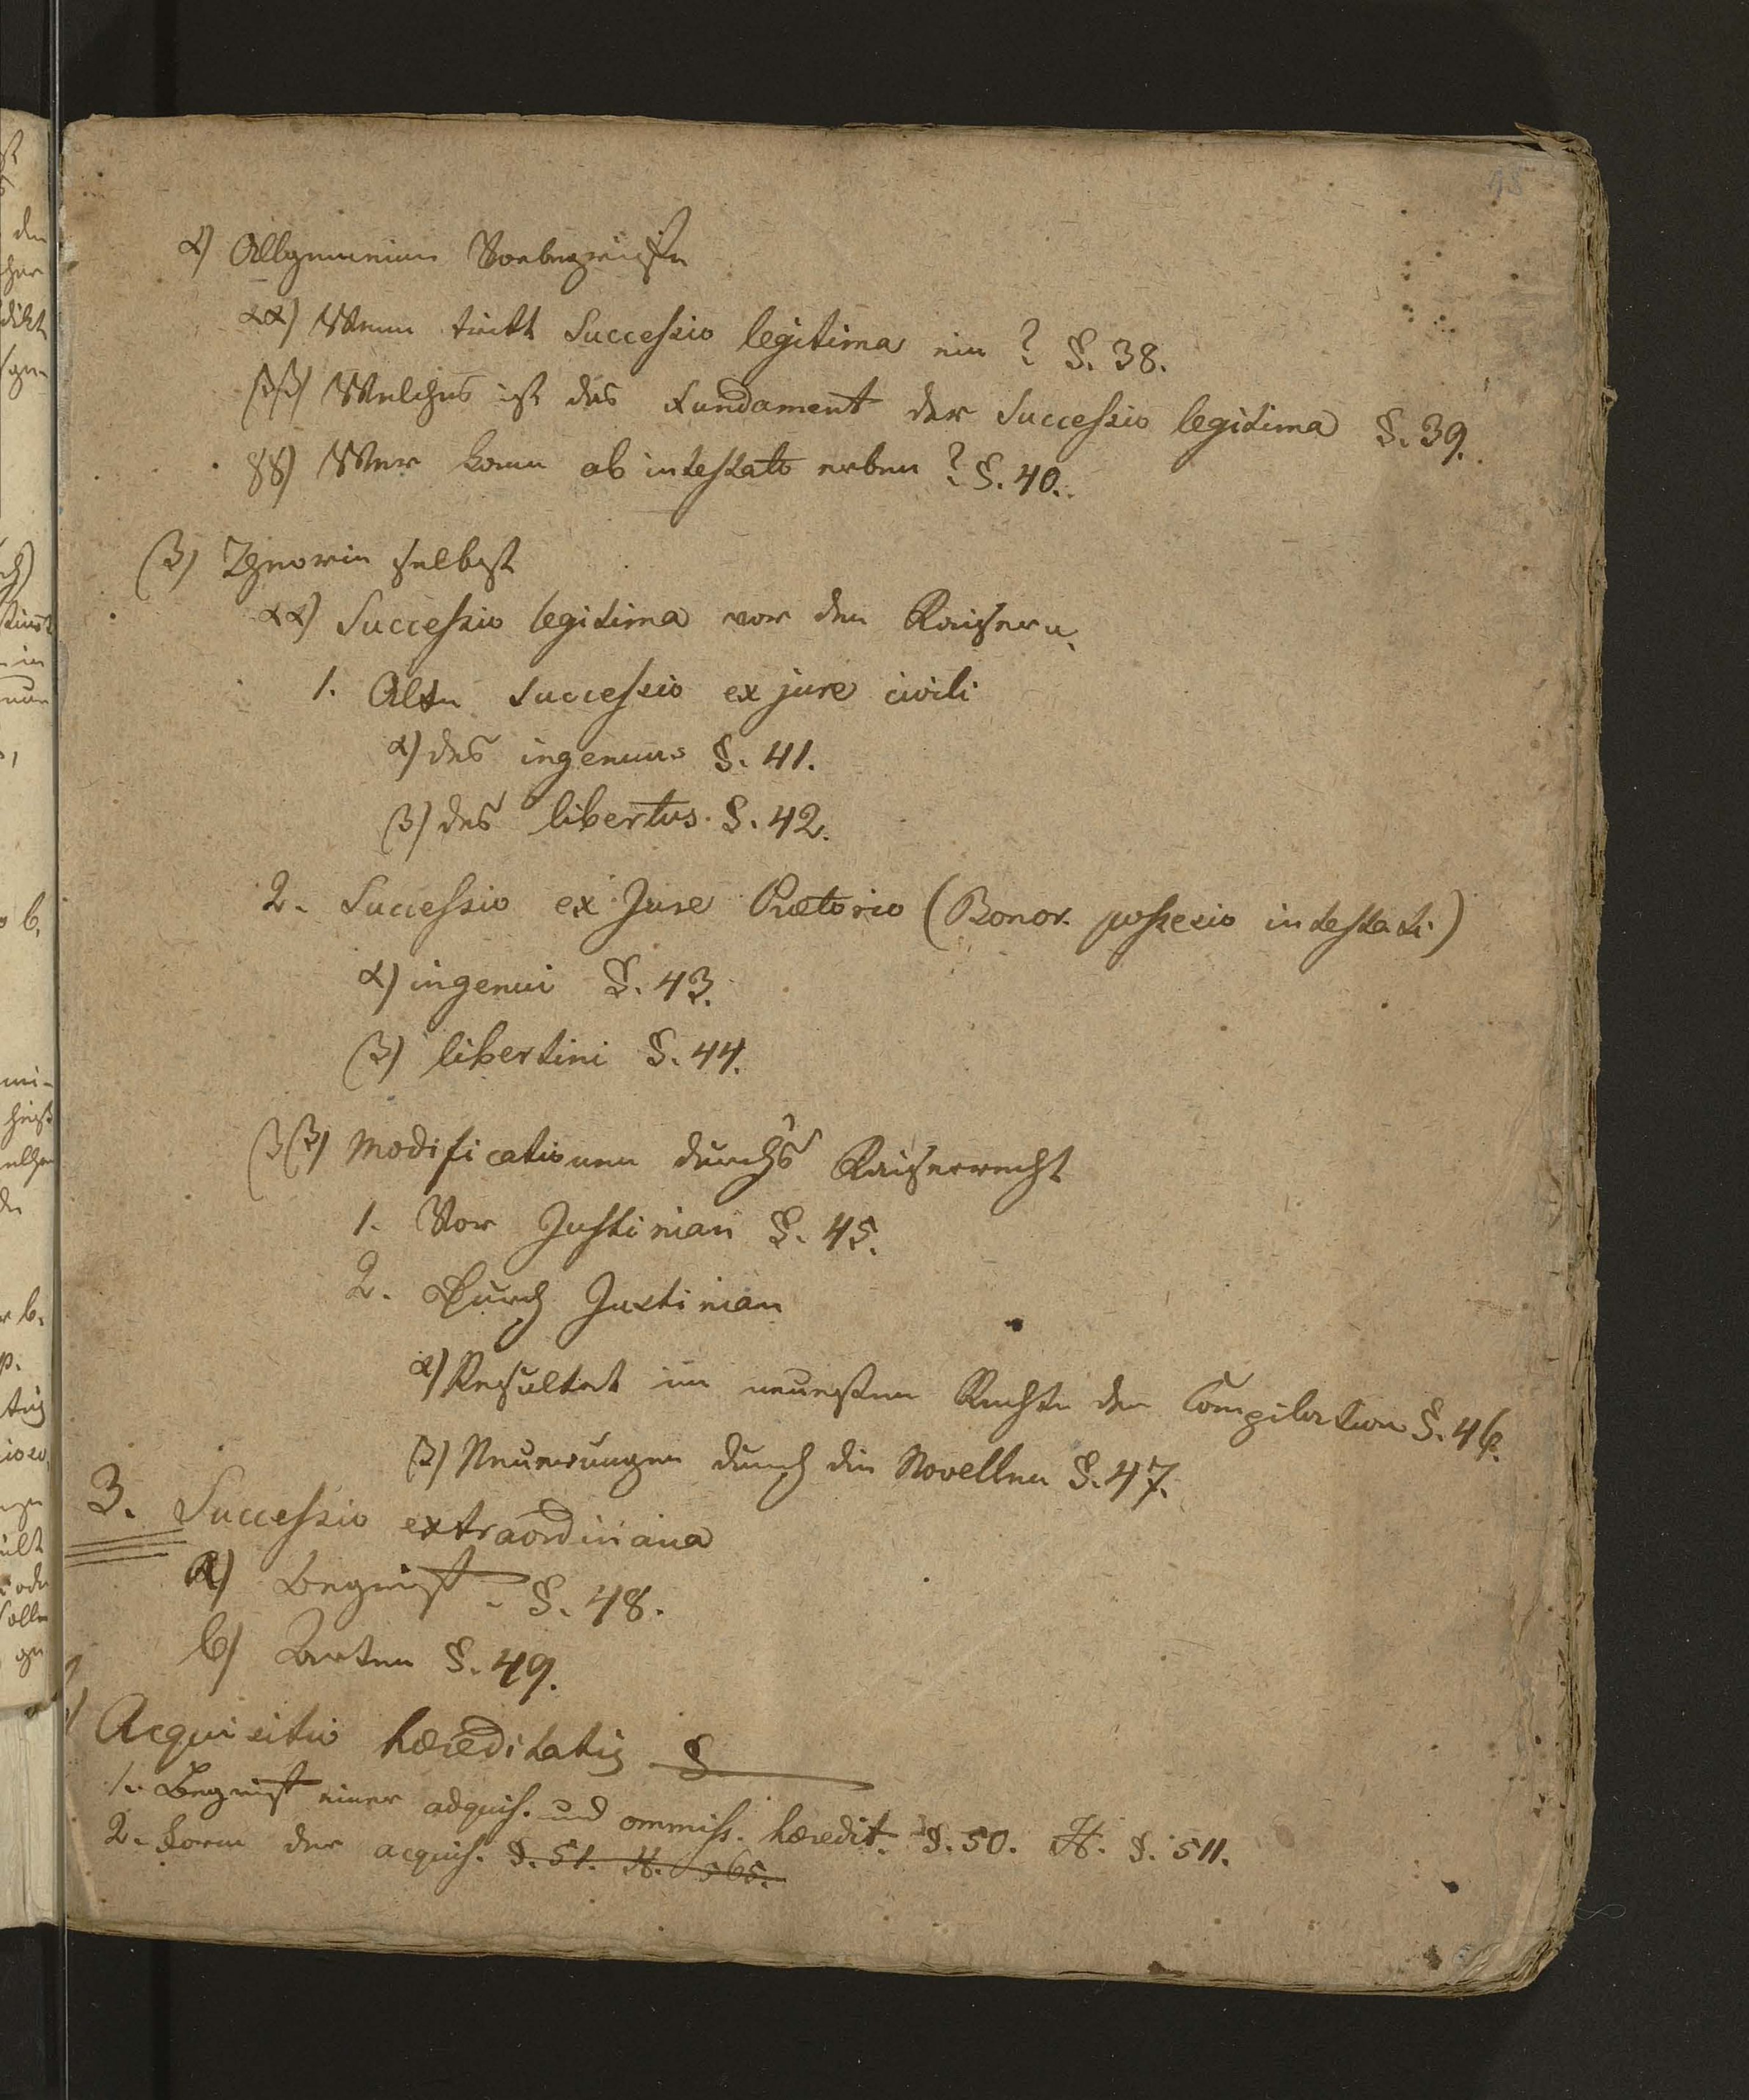 α) Allgemeine Vorbegriffe
αα) Wenn tritt Successio legitima ein? §. 38.
ββ) Welches ist das Fundament der Successio legitima §. 39.
γγ) Wer kann ab intestato erben? §. 40.
β) Theorie selbst
αα) Successio legitima vor den Kaisern.
1. Alte Successio ex jure civili
α) des ingenuus §. 41.
β) des libertus. §. 42.
2. Successio ex Jure Prætorio (Bonor. possessio intestati)
α) ingenui §. 43.
β) libertini §. 44.
ββ) Modificationen durch's Kaiserrecht
1. Vor Justinian §. 45.
2. Durch Justinian
α) Resultat im neuesten Rechte der Compilation §. 46.
β) Neuerungen durch die Novellen §. 47.
3. Successio extraordinaria
a) Begriff §. 48.
b) Arten §. 49.
Acquisitio hæreditatis §
1. Begriff einer adquis. und ommiss. hæredit. §. 50. H. §. 511.
2. Form der acquis. §. 51. H. 565.